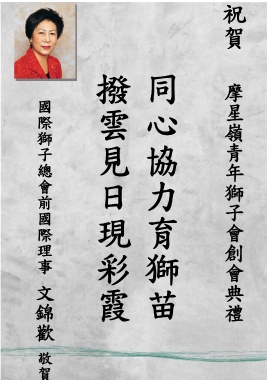 祝賀
摩星嶺青年獅子會創會典禮
同心協力育獅苗
撥雲見日現彩霞
國際獅子總會前國際理事 文錦歡 敬賀